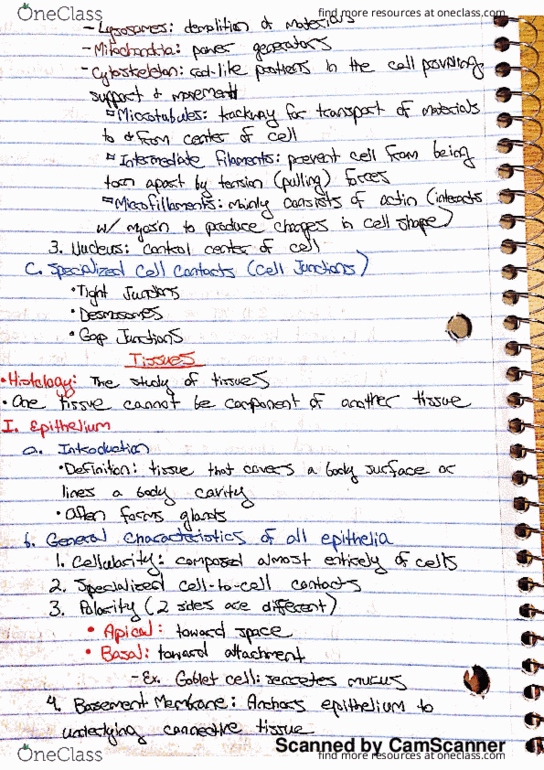 OneClass
find more resources at oneclass.com
- Lysosomes: demolition of materials
- Mitochondria: power generators
- Cytoskeleton: rod-like proteins in the cell providing
support & movement
Microtubules: trackway for transport of materials
to & from center of cell
Intermediate filaments: prevent cell from being
torn apart by tension (pulling) forces
Microfillaments: mainly consists of actin (interacts
w/ myosin to produce changes in cell shape)
3. Nucleus: control center of cell
C. Specialized Cell Contacts (Cell Junctions)
• Tight Junctions
• Desmosomes
• Gap Junctions
Tissues
• Histology: The study of tissues
• One tissue cannot be component of another tissue
I. Epithelium
a. Introduction
• Definition: tissue that covers a body surface or
lines a body cavity
• Often forms glands
b. General Characteristics of all epithelia
1. Cellularity: composed almost entirely of cells
2. Specialized cell-to-cell contacts
3. Polarity (2 sides are different)
• Apical: toward space
• Basal: toward attachment
- Ex. Goblet cell: secretes mucus
4. Basement Membrane: Anchors epithelium to
underlying connective tissue
Scanned by CamScanner
OneClass
find more resources at oneclass.com